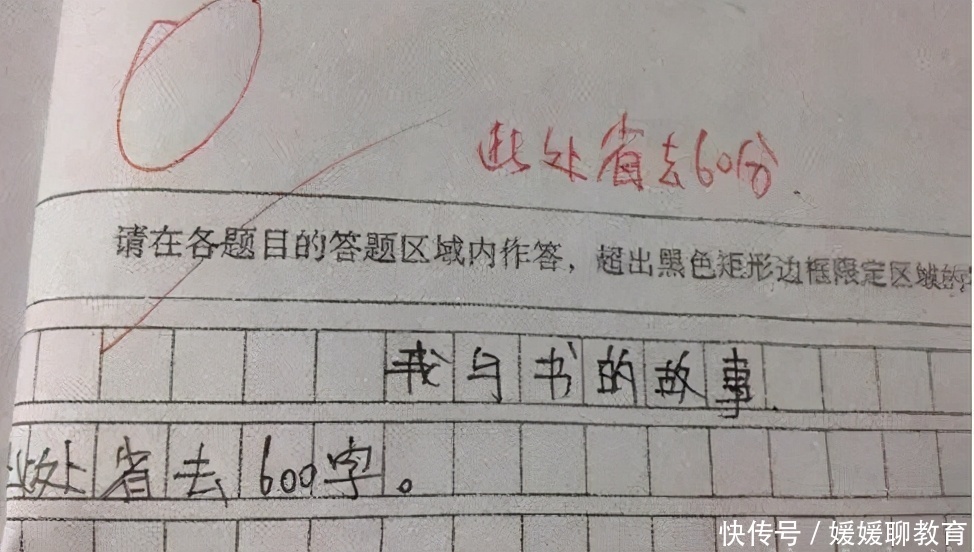 此处省去60分.
请在各题目的答题区域内作答，超出黑色矩形边框限定区域的
我与书的故事.
此处省去600字。
快传号／媛媛聊教育